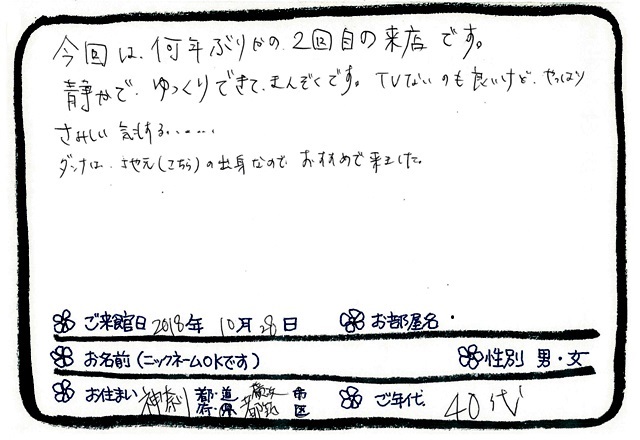 今回は、何年ぶりかの2回目の来店です。
静かで、ゆっくりできて、まんぞくです。TVないのも良いけど、やっぱり
さみしい気もする……
ダンナは、(こちら)の出身なので、おすすめで来ました。
ご来館日 2018年 10月 28日 お部屋名・
お名前(ニックネームOKです) 性別 男・女
お住まい 神奈川 都・道 府・県 市 区 ご年代 40代